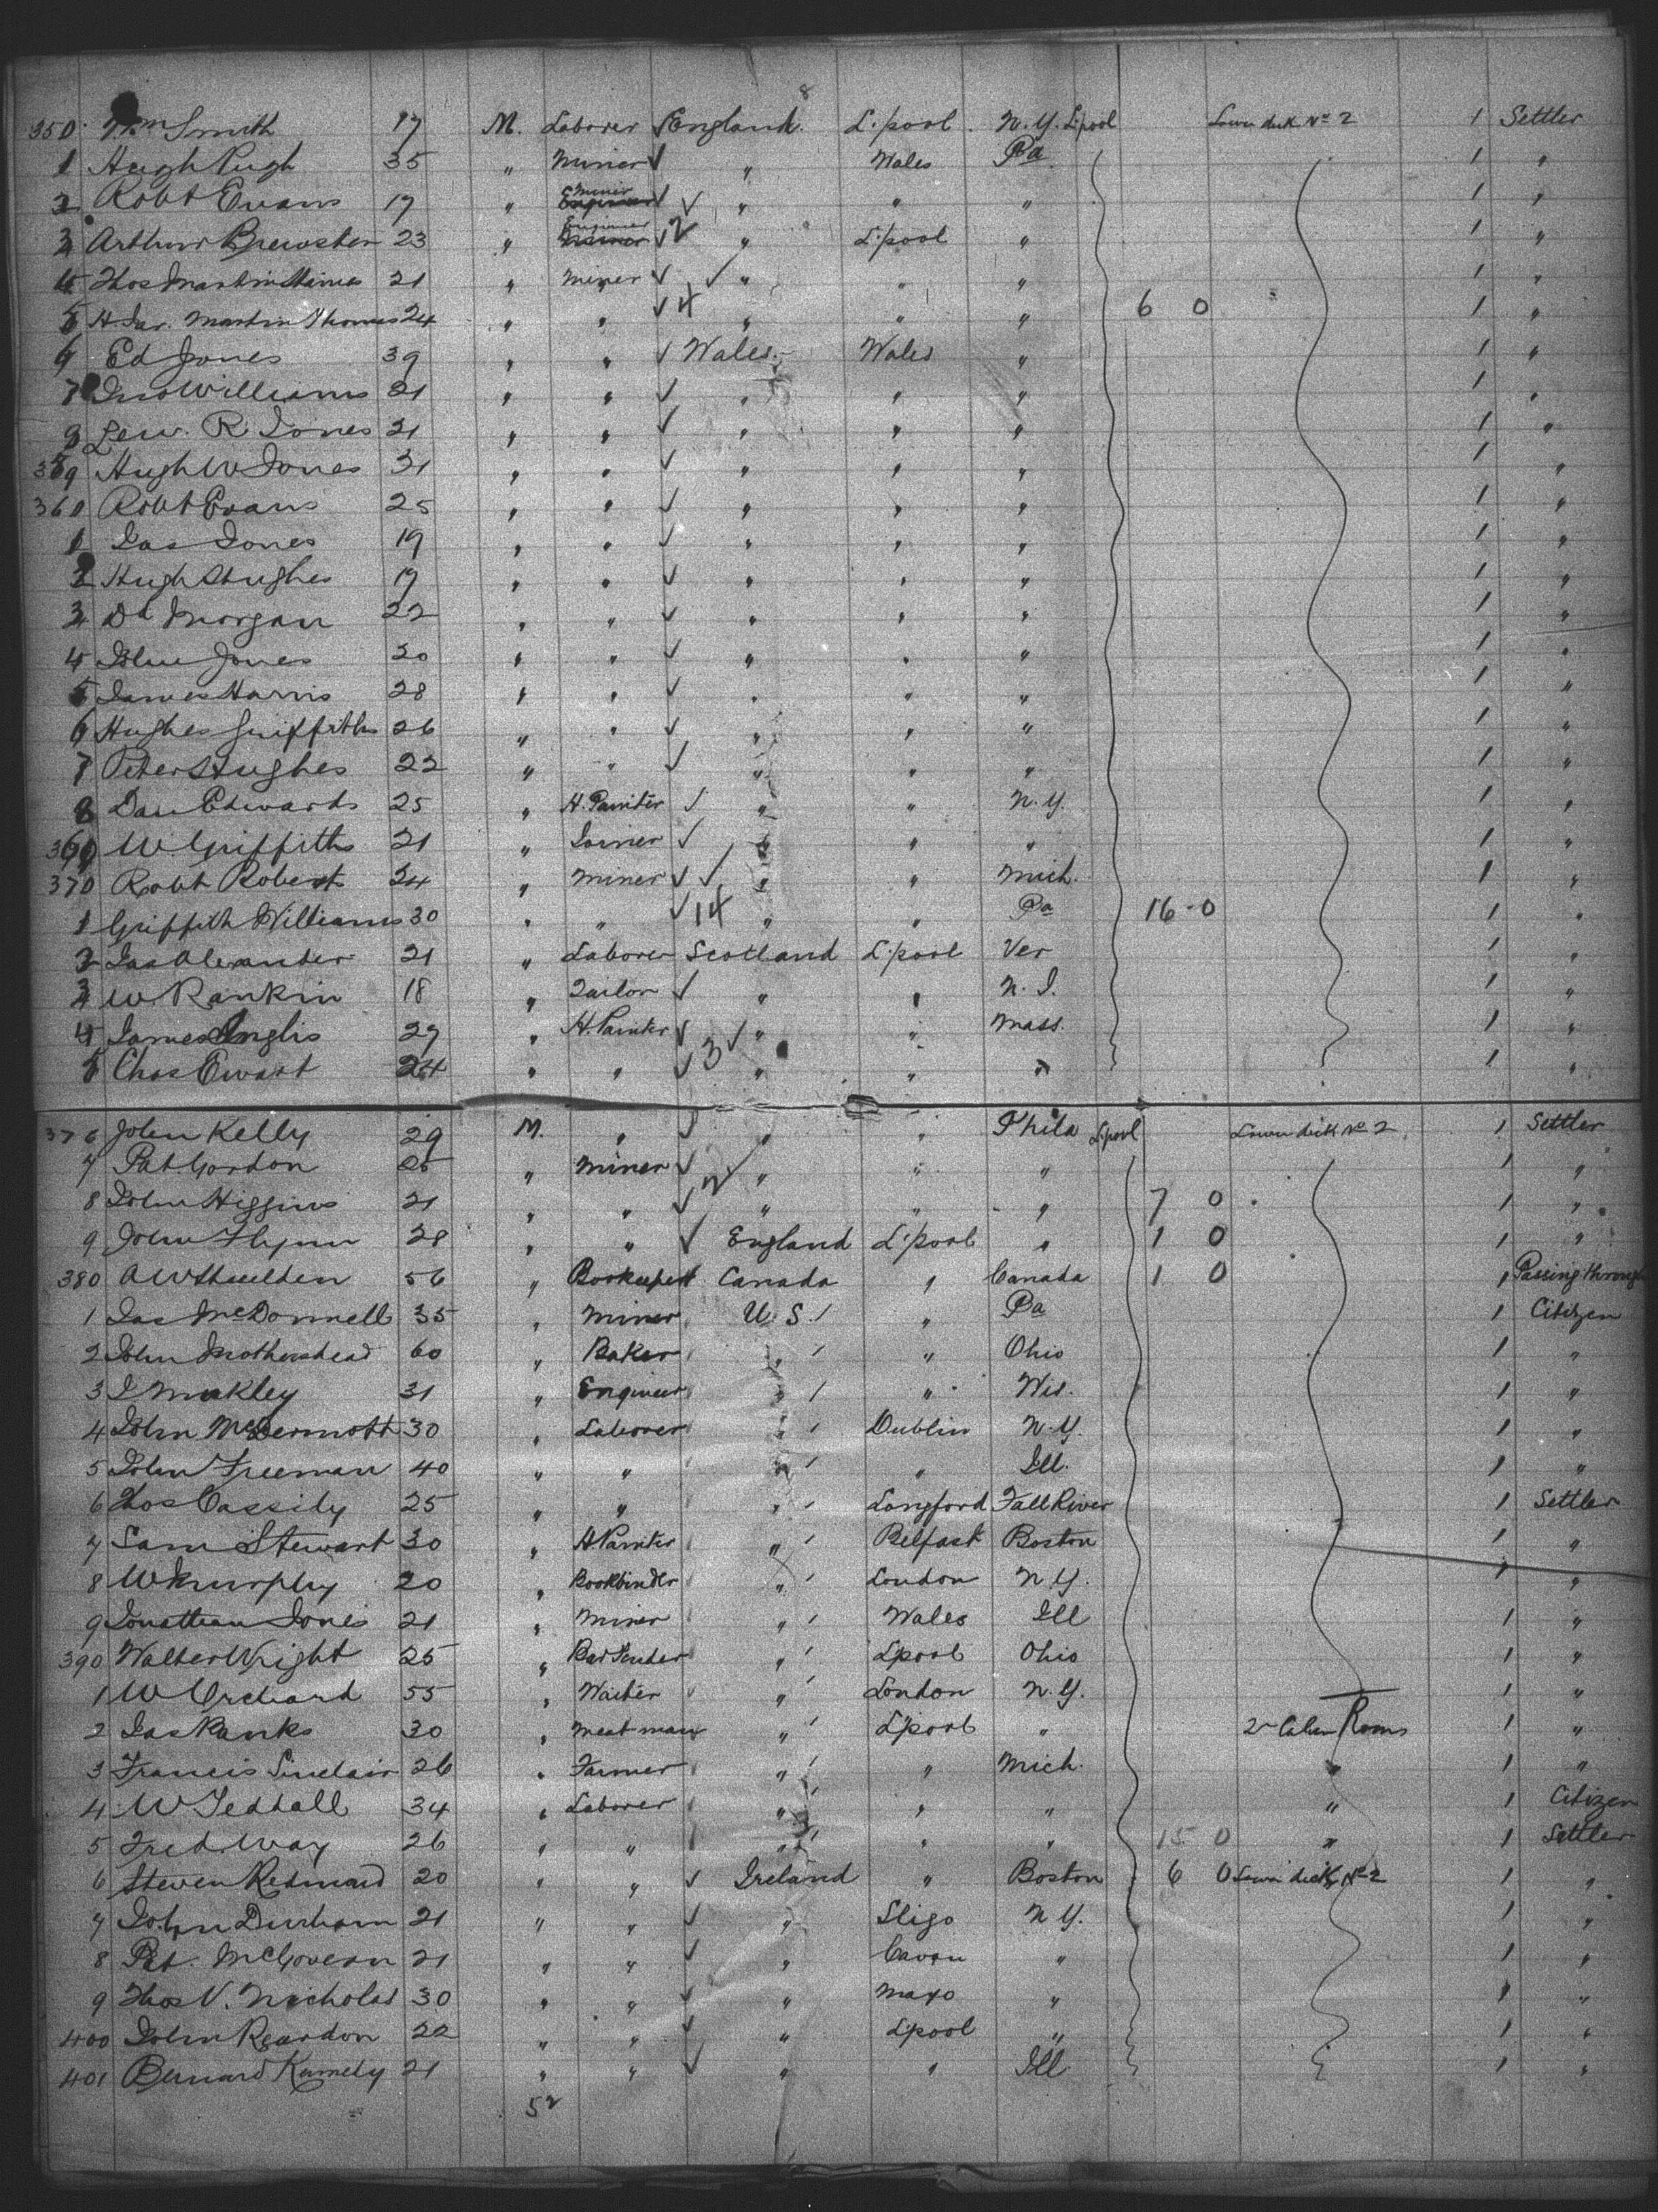 8
350 Wm Smith 17 M. Laborer England. L.pool. N.Y. L.pool Lower deck No 2 1 Settler
1 Hugh Pugh 35 " Miner " Wales Pa 1 "
2 Robt Evans 17 " Miner " " " 1 "
3 Arthur Brewster 23 " Engineer 2 " L.pool " 1 "
4 Thos Martin 21 " Miner " " " 1 "
5 Martin Thomas 24 " " 4 " " " 6 0 1 "
6 Ed Jones 39 " " Wales. Wales " 1 "
7 Jno Williams 21 " " " " " 1 "
8 Lew. R. Jones 21 " " " " " 1 "
359 Hugh W Jones 31 " " " " " 1 "
360 Robt Evans 25 " " " " " 1 "
1 Jas Jones 19 " " " " " 1 "
2 Hugh Hughes 19 " " " " " 1 "
3 Dd Morgan 22 " " " " " 1 "
4 John Jones 20 " " " " " 1 "
5 James Harris 28 " " " " " 1 "
6 Hughes Griffiths 26 " " " " " 1 "
7 Peter Hughes 22 " " " " " 1 "
8 Dan Edwards 25 " H. Painter " " N.Y. 1 "
369 W. Griffiths 21 " Joiner " " " 1 "
370 Robt Roberts 24 " Miner " " Mich. 1 "
1 Griffith Williams 30 " " 14 " " Pa 16-0 1 "
2 Jas Alexander 21 " Laborer Scotland L.pool Ver 1 "
3 W Rankin 18 " Tailor " " N.J. 1 "
4 James Inglis 29 " H. Painter " " Mass. 1 "
5 Chas Ewart 24 " " 3 " " " 1 "
376 John Kelly 29 M. " " " Phila L.pool Lower deck No 2 1 Settler
7 Pat. Gordon 25 " Miner " " " 1 "
8 John Higgins 21 " " 2 " " " 7 0 1 "
9 John Flynn 28 " " England L.pool " 1 0 1 "
380 A W 56 " Bookeeper Canada " Canada 1 0 1 Passing through
1 Jas McDonnell 35 " Miner U.S. " Pa 1 Citizen
2 John Mothershead 60 " Baker " " Ohio 1 "
3 J Mukley 31 " Engineer " " Wis. 1 "
4 John McDermott 30 " Laborer " Dublin N.Y. 1 "
5 John Freeman 40 " " " " Ill. 1 "
6 Thos Cassidy 25 " " " Longford Fall River 1 Settler
7 Sam Stewart 30 " H Painter " Belfast Boston 1 "
8 W Murphy 20 " Bookbinder " London N.Y. 1 "
9 Jonathan Jones 21 " Miner " Wales Ill 1 "
390 Walter Wright 25 " Bar Tender " Lpool Ohio 1 "
1 W Orchard 55 " Waiter " London N.Y. 1 "
2 Jas Banks 30 " Meat man " Lpool " 2 Cabin Rooms 1 "
3 Francis Sinclair 26 " Farmer " " Mich. " 1 "
4 W Tedhall 34 " Laborer " " " " 1 Citizen
5 Fred. Way 26 " " " " " 15 0 " 1 Settler
6 Steven Redmond 20 " " Ireland " Boston 6 0 Lower deck No 2 1 "
7 John Durham 21 " " " Sligo N.Y. 1 "
8 Pat. McGovern 21 " " " Cavan " 1 "
9 Thos V. Nicholas 30 " " " Mayo " 1 "
400 John Reardon 22 " " " Lpool " 1 "
401 Bernard 21 " " " " Ill 1 "
52